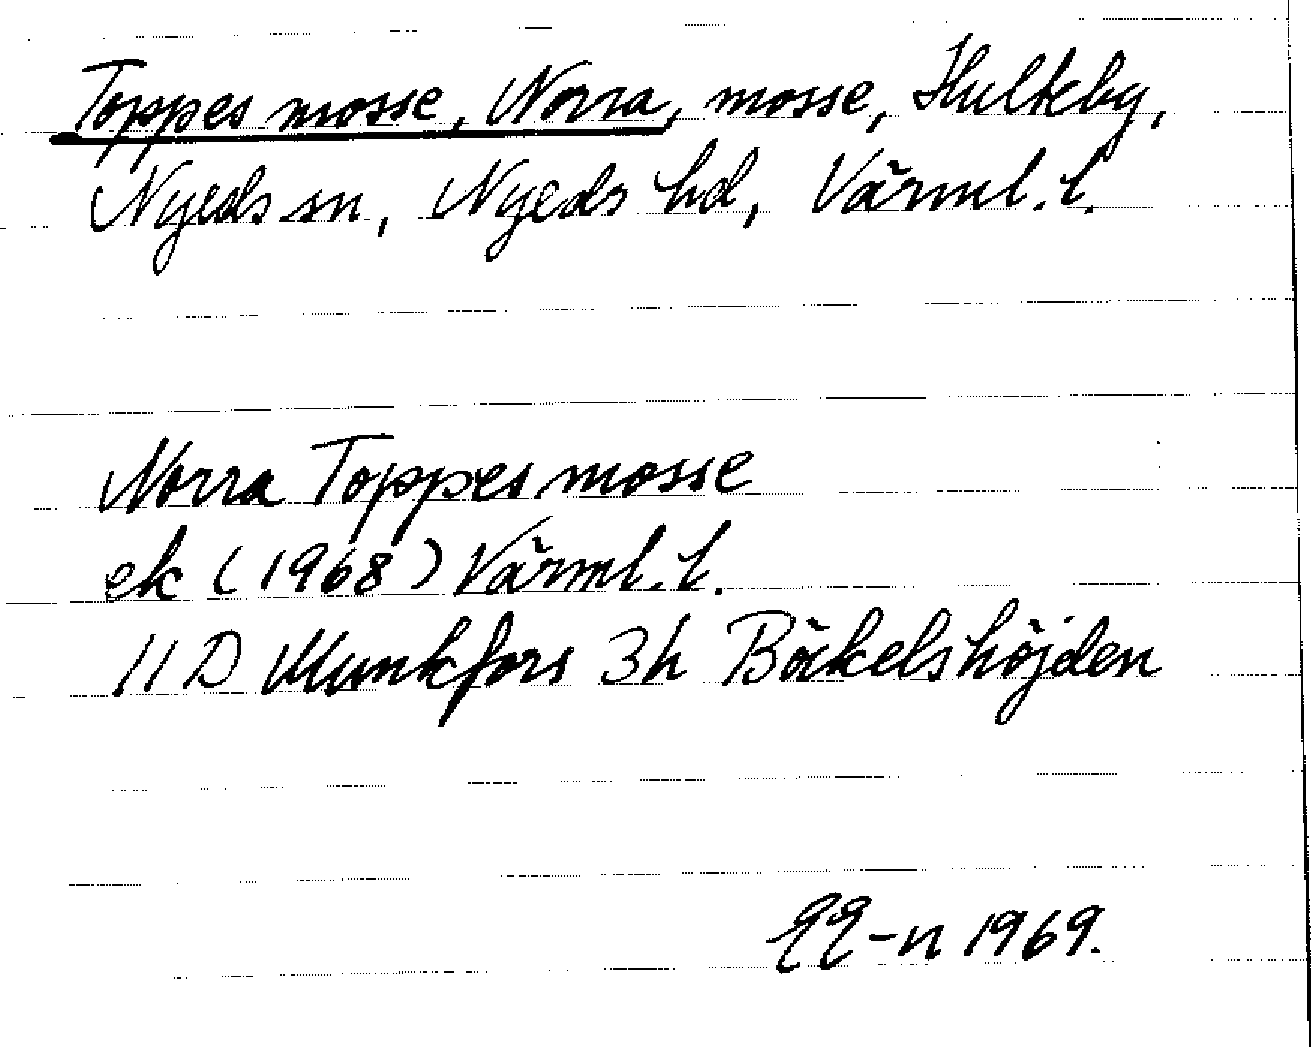 Toppes mosse, Norra, mosse, Hultby,
Nyeds sn, Nyeds hd, Värml. l.
Norra Toppes mosse
ek (1968) Värml. l.
11 D Munkfors 3h Böckelshöjden
1969.